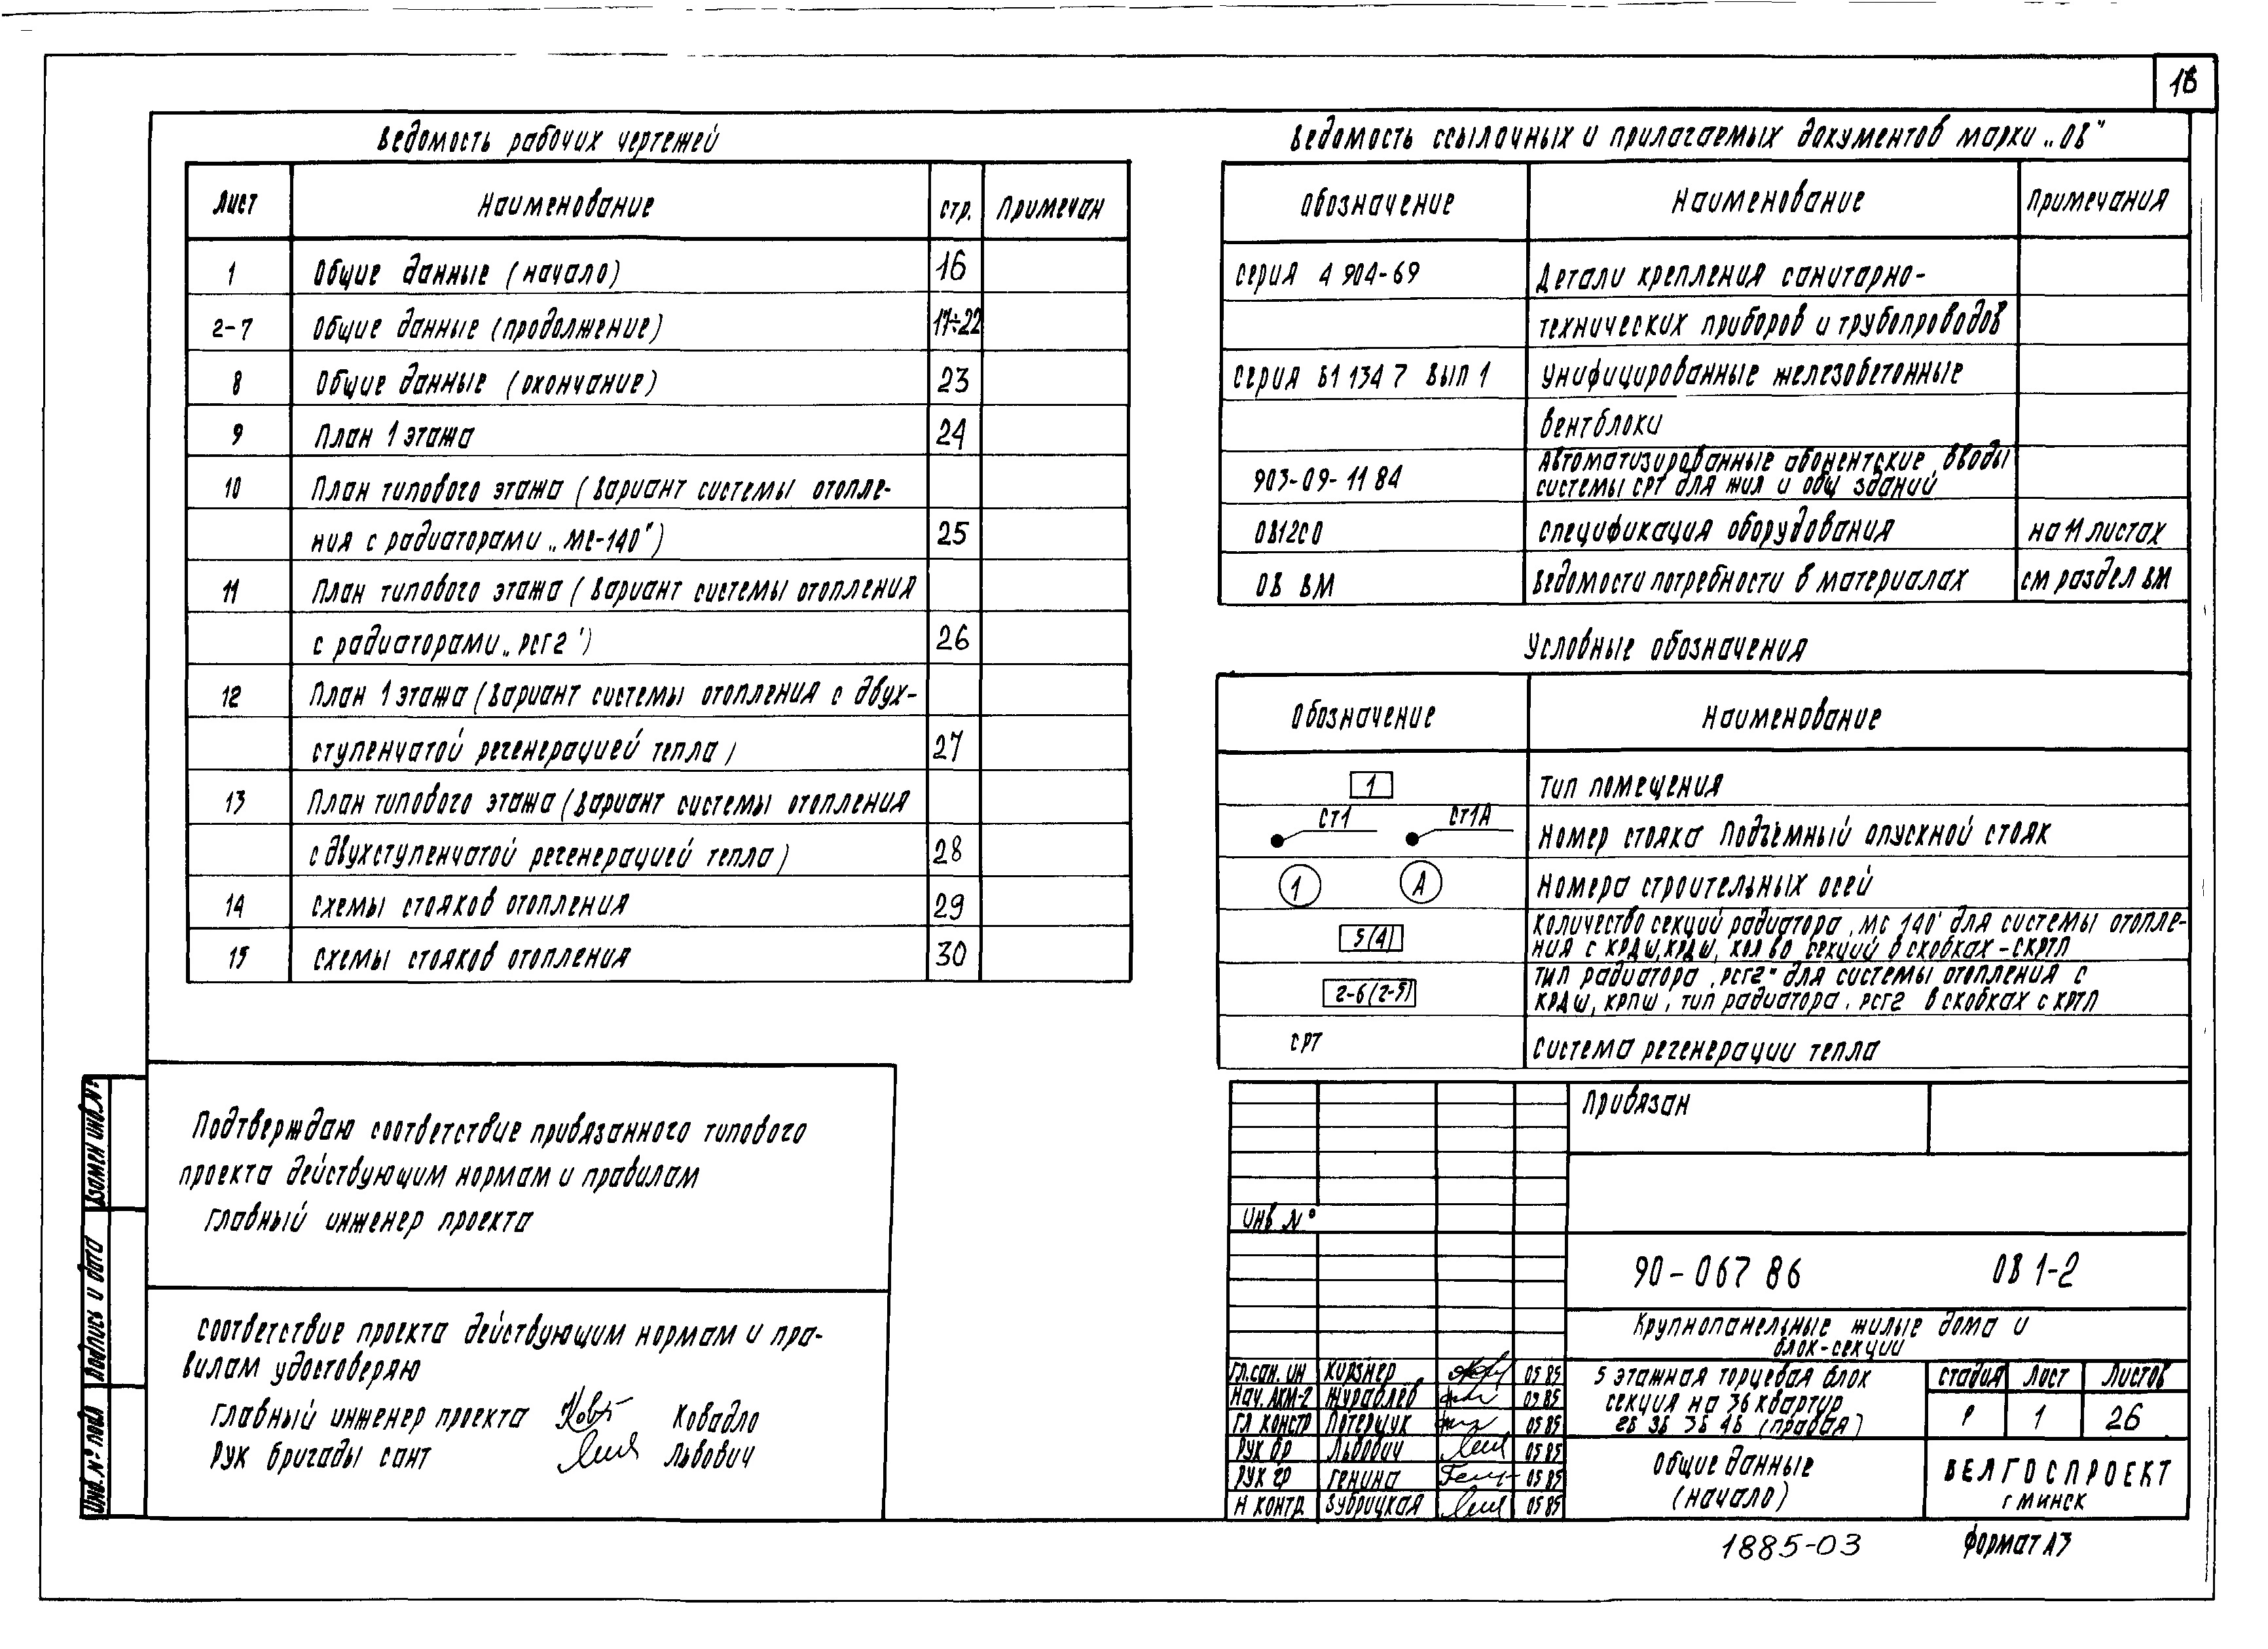 16
Ведомость рабочих чертежей
Лист Наименование стр. Примечан
1 Общие данные (начало) 16
2-7 Общие данные (продолжение) 17÷22
8 Общие данные (окончание) 23
9 План 1 этажа 24
10 План типового этажа (вариант системы отопле-
ния с радиаторами „МС-140") 25
11 План типового этажа (вариант системы отопления
с радиаторами „РСГ2") 26
12 План 1 этажа (вариант системы отопления с двух-
ступенчатой регенерацией тепла) 27
13 План типового этажа (вариант системы отопления
с двухступенчатой регенерацией тепла) 28
14 Схемы стояков отопления 29
15 Схемы стояков отопления 30
Ведомость ссылочных и прилагаемых документов марки „ОВ"
Обозначение Наименование Примечания
Серия 4 904-69 Детали крепления санитарно-
технических приборов и трубопроводов
Серия Б1 134 7 вып 1 Унифицированные железобетонные
вентблоки
903-09-11 84 Автоматизированные абонентские вводы
системы СРТ для жил и общ зданий
ОВ12СО Спецификация оборудования на 11 листах
ОВ ВМ Ведомости потребности в материалах см раздел ВМ
Условные обозначения
Обозначение Наименование
1 Тип помещения
Ст1 Ст1А Номер стояка Подъемный опускной стояк
1 А Номера строительных осей
5(4) Количество секций радиатора „МС 140" для системы отопле-
ния с КРДШ, КРДШ, кол во секций в скобках - СКРТП
2-6(2-5) Тип радиатора „РСГ2" для системы отопления с
КРДШ, КРПШ, тип радиатора „РСГ2 в скобках с КРТП
СРТ Система регенерации тепла
Подтверждаю соответствие привязанного типового
проекта действующим нормам и правилам
Главный инженер проекта
Соответствие проекта действующим нормам и пра-
вилам удостоверяю
Главный инженер проекта Ковадло
Рук бригады сант Львович
Взамен инв.№
Подпись и дата
Инв.№ подл
Привязан
Инв №
90-067 86 ОВ 1-2
Крупнопанельные жилые дома и
блок-секции
Гл.сан. ин Кирзнер 05 85
Нач. АКМ-2 Журавлев 05 85
Гл констр Потерщук 05 85
Рук бр Львович 05 85
Рук гр Генина 05 85
Н контр Зубрицкая 05 85
5 этажная торцевая блок
секция на 36 квартир
2Б 3Б 3Б 4Б (правая)
Стадия Лист Листов
Р 1 26
Общие данные
(начало)
БЕЛГОСПРОЕКТ
г Минск
1885-03 Формат А3